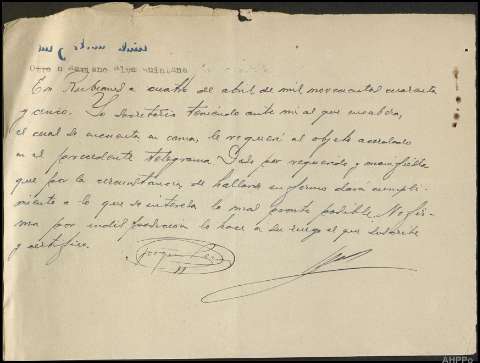 Otro a Germano Alvz Quintana
En Rubiana a cuatro de abril de mil novecientos cuarenta
y cinco. Yo Secretario teniendo ante mi al que encabeza,
el cual se encuentra en cama, le requeri al objeto acordado
en el precedente telegrama. Se da por requerido y manifiesta
que por la circunstancia de hallarse enfermo dará cumpli-
miento a lo que se interesa lo mas pronto posible. No fir-
ma por indisposición lo hace a su ruego el que suscribe
y certifico.
AHPPo